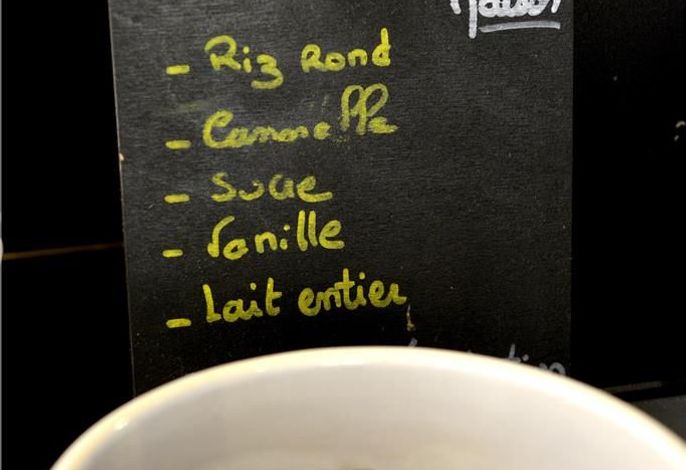 Maison
- Riz Rond
- Cannelle
- Sucre
- Vanille
- Lait entier